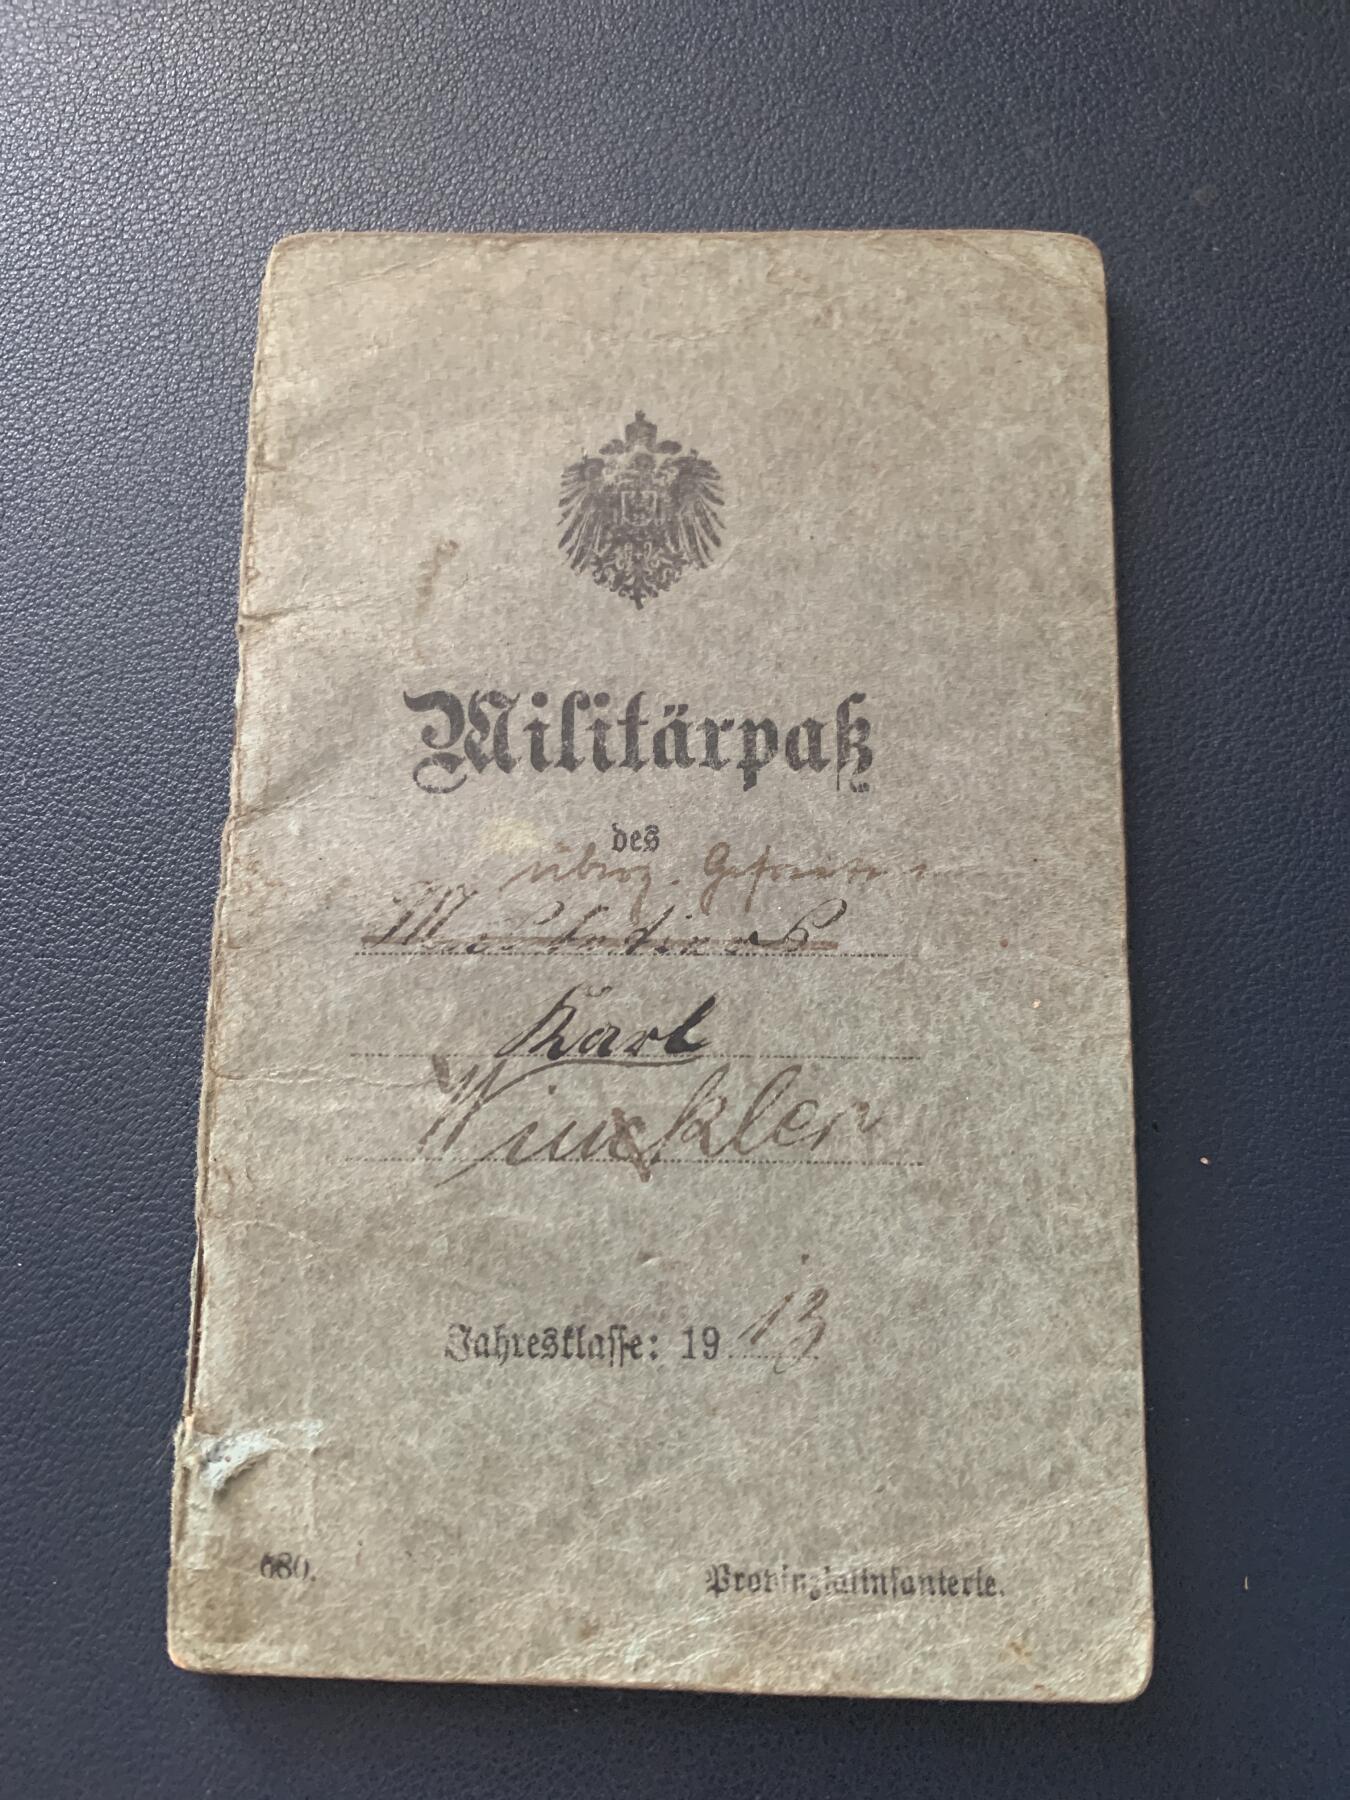 Militärpaß
des
überz. Gefreiten
Musketiers
Karl
Winckler
Jahresklasse: 1913
680.
Provinzialinfanterie.